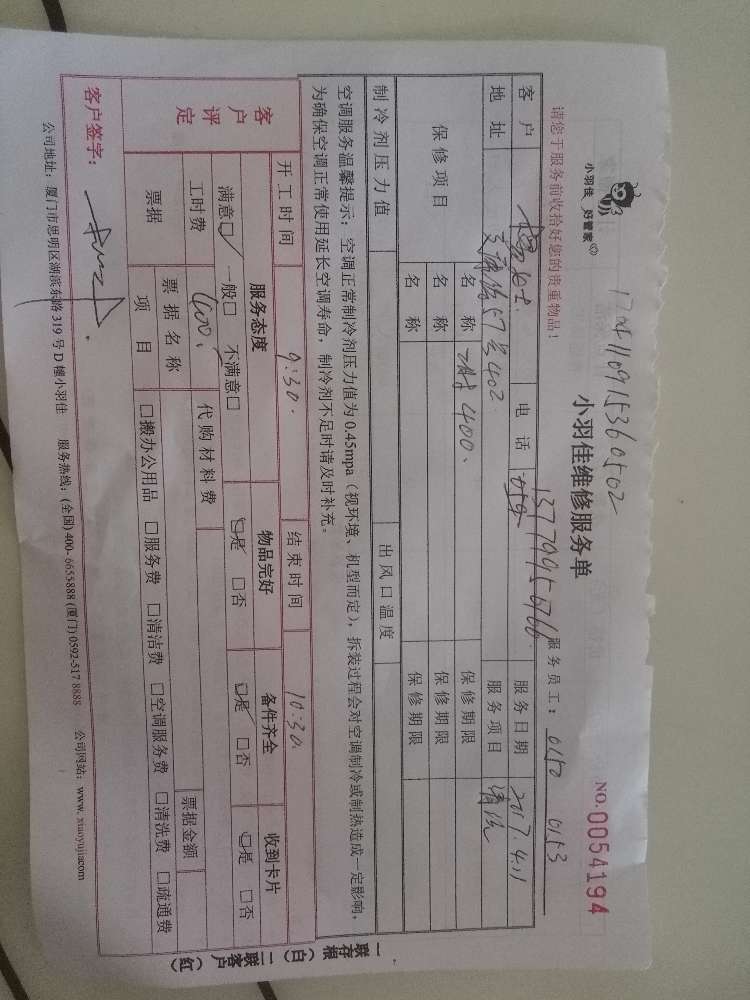 小羽佳 好管家
请您于服务前收拾好您的贵重物品！
小羽佳维修服务单
NO.0054194
服务员工： 0150 0153
客户 电话 服务日期 2017.4.11
地址 57号402 服务项目 清洗
保修项目 名称 400. 保修期限
名称 保修期限
名称 保修期限
制冷剂压力值 出风口温度
空调服务温馨提示：空调正常制冷剂压力值为0.45mpa（视环境、机型而定），拆装过程会对空调制冷或制热造成一定影响，
为确保空调正常使用延长空调寿命，制冷剂不足时请及时补充。
开工时间 9:30. 结束时间 10:30.
客户评定 服务态度 物品完好 备件齐全 收到卡片
满意□ 一般□ 不满意□ □是 □否 □是 □否 □是 □否
工时费 400. 代购材料费
票据 票据名称 票据金额
项目 □搬办公用品 □服务费 □清洁费 □空调服务费 □清洗费 □疏通费
客户签字：
公司地址：厦门市思明区湖滨东路319号D幢小羽佳 服务热线：(全国)400-6655888 (厦门)0592-517 8888 公司网站：www.xiaoyujia.com
一联存根（白）二联客户（红）